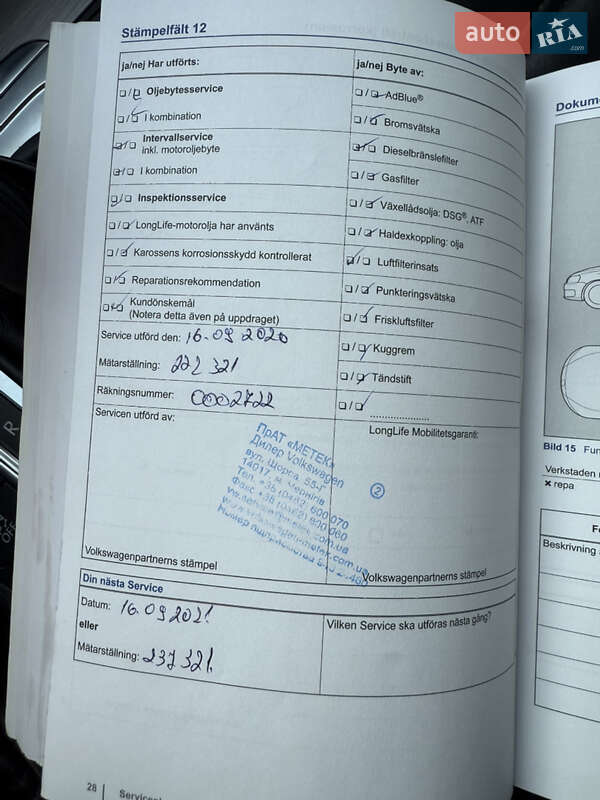 auto RIA .com
Stämpelfält 12
ja/nej Har utförts:
ja/nej Byte av:
Oljebytesservice
AdBlue®
I kombination
Bromsvätska
Intervallservice
inkl. motoroljebyte
Dieselbränslefilter
I kombination
Gasfilter
Inspektionsservice
Växellådsolja: DSG®, ATF
LongLife-motorolja har använts
Haldexkoppling: olja
Karossens korrosionsskydd kontrollerat
Luftfilterinsats
Reparationsrekommendation
Punkteringsvätska
Kundönskemål
(Notera detta även på uppdraget)
Friskluftsfilter
Service utförd den: 16.09 2020
Kuggrem
Mätarställning: 222 321
Tändstift
Räkningsnummer: 0002722
Servicen utförd av:
LongLife Mobilitetsgaranti:
ПрАТ «МЕТЕК»
Дилер Volkswagen
вул. Щорса, 55-Г
14017, м. Чернігів
Тел. +38 (0462) 600 070
Факс +38 (0462) 600 060
2
Volkswagenpartnerns stämpel
Volkswagenpartnerns stämpel
Din nästa Service
Datum: 16.09 2021.
eller
Mätarställning: 237 321.
Vilken Service ska utföras nästa gång?
28
Dokume
Bild 15 Fun
Verkstaden
× repa
Beskrivning